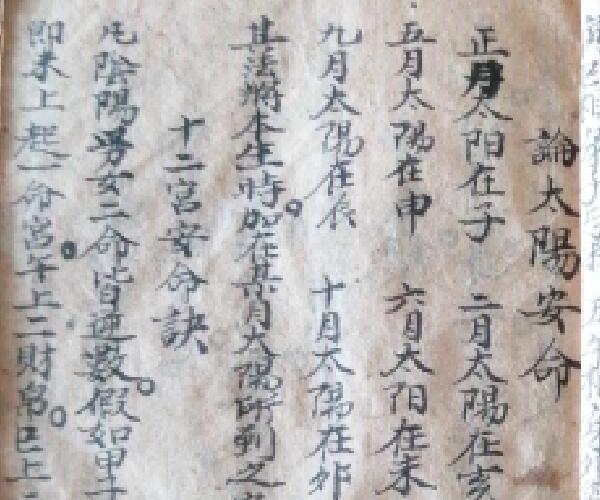 論太陽安命
正月太阳在子 二月太陽在亥
五月太陽在申 六月太阳在未
九月太陽在辰 十月太陽在卯
其法將本生時加在某月太陽所到之
十二宮安命訣
凡陰陽男女二命皆逆數假如甲子
即未上起一命宮午上二財帛巳上